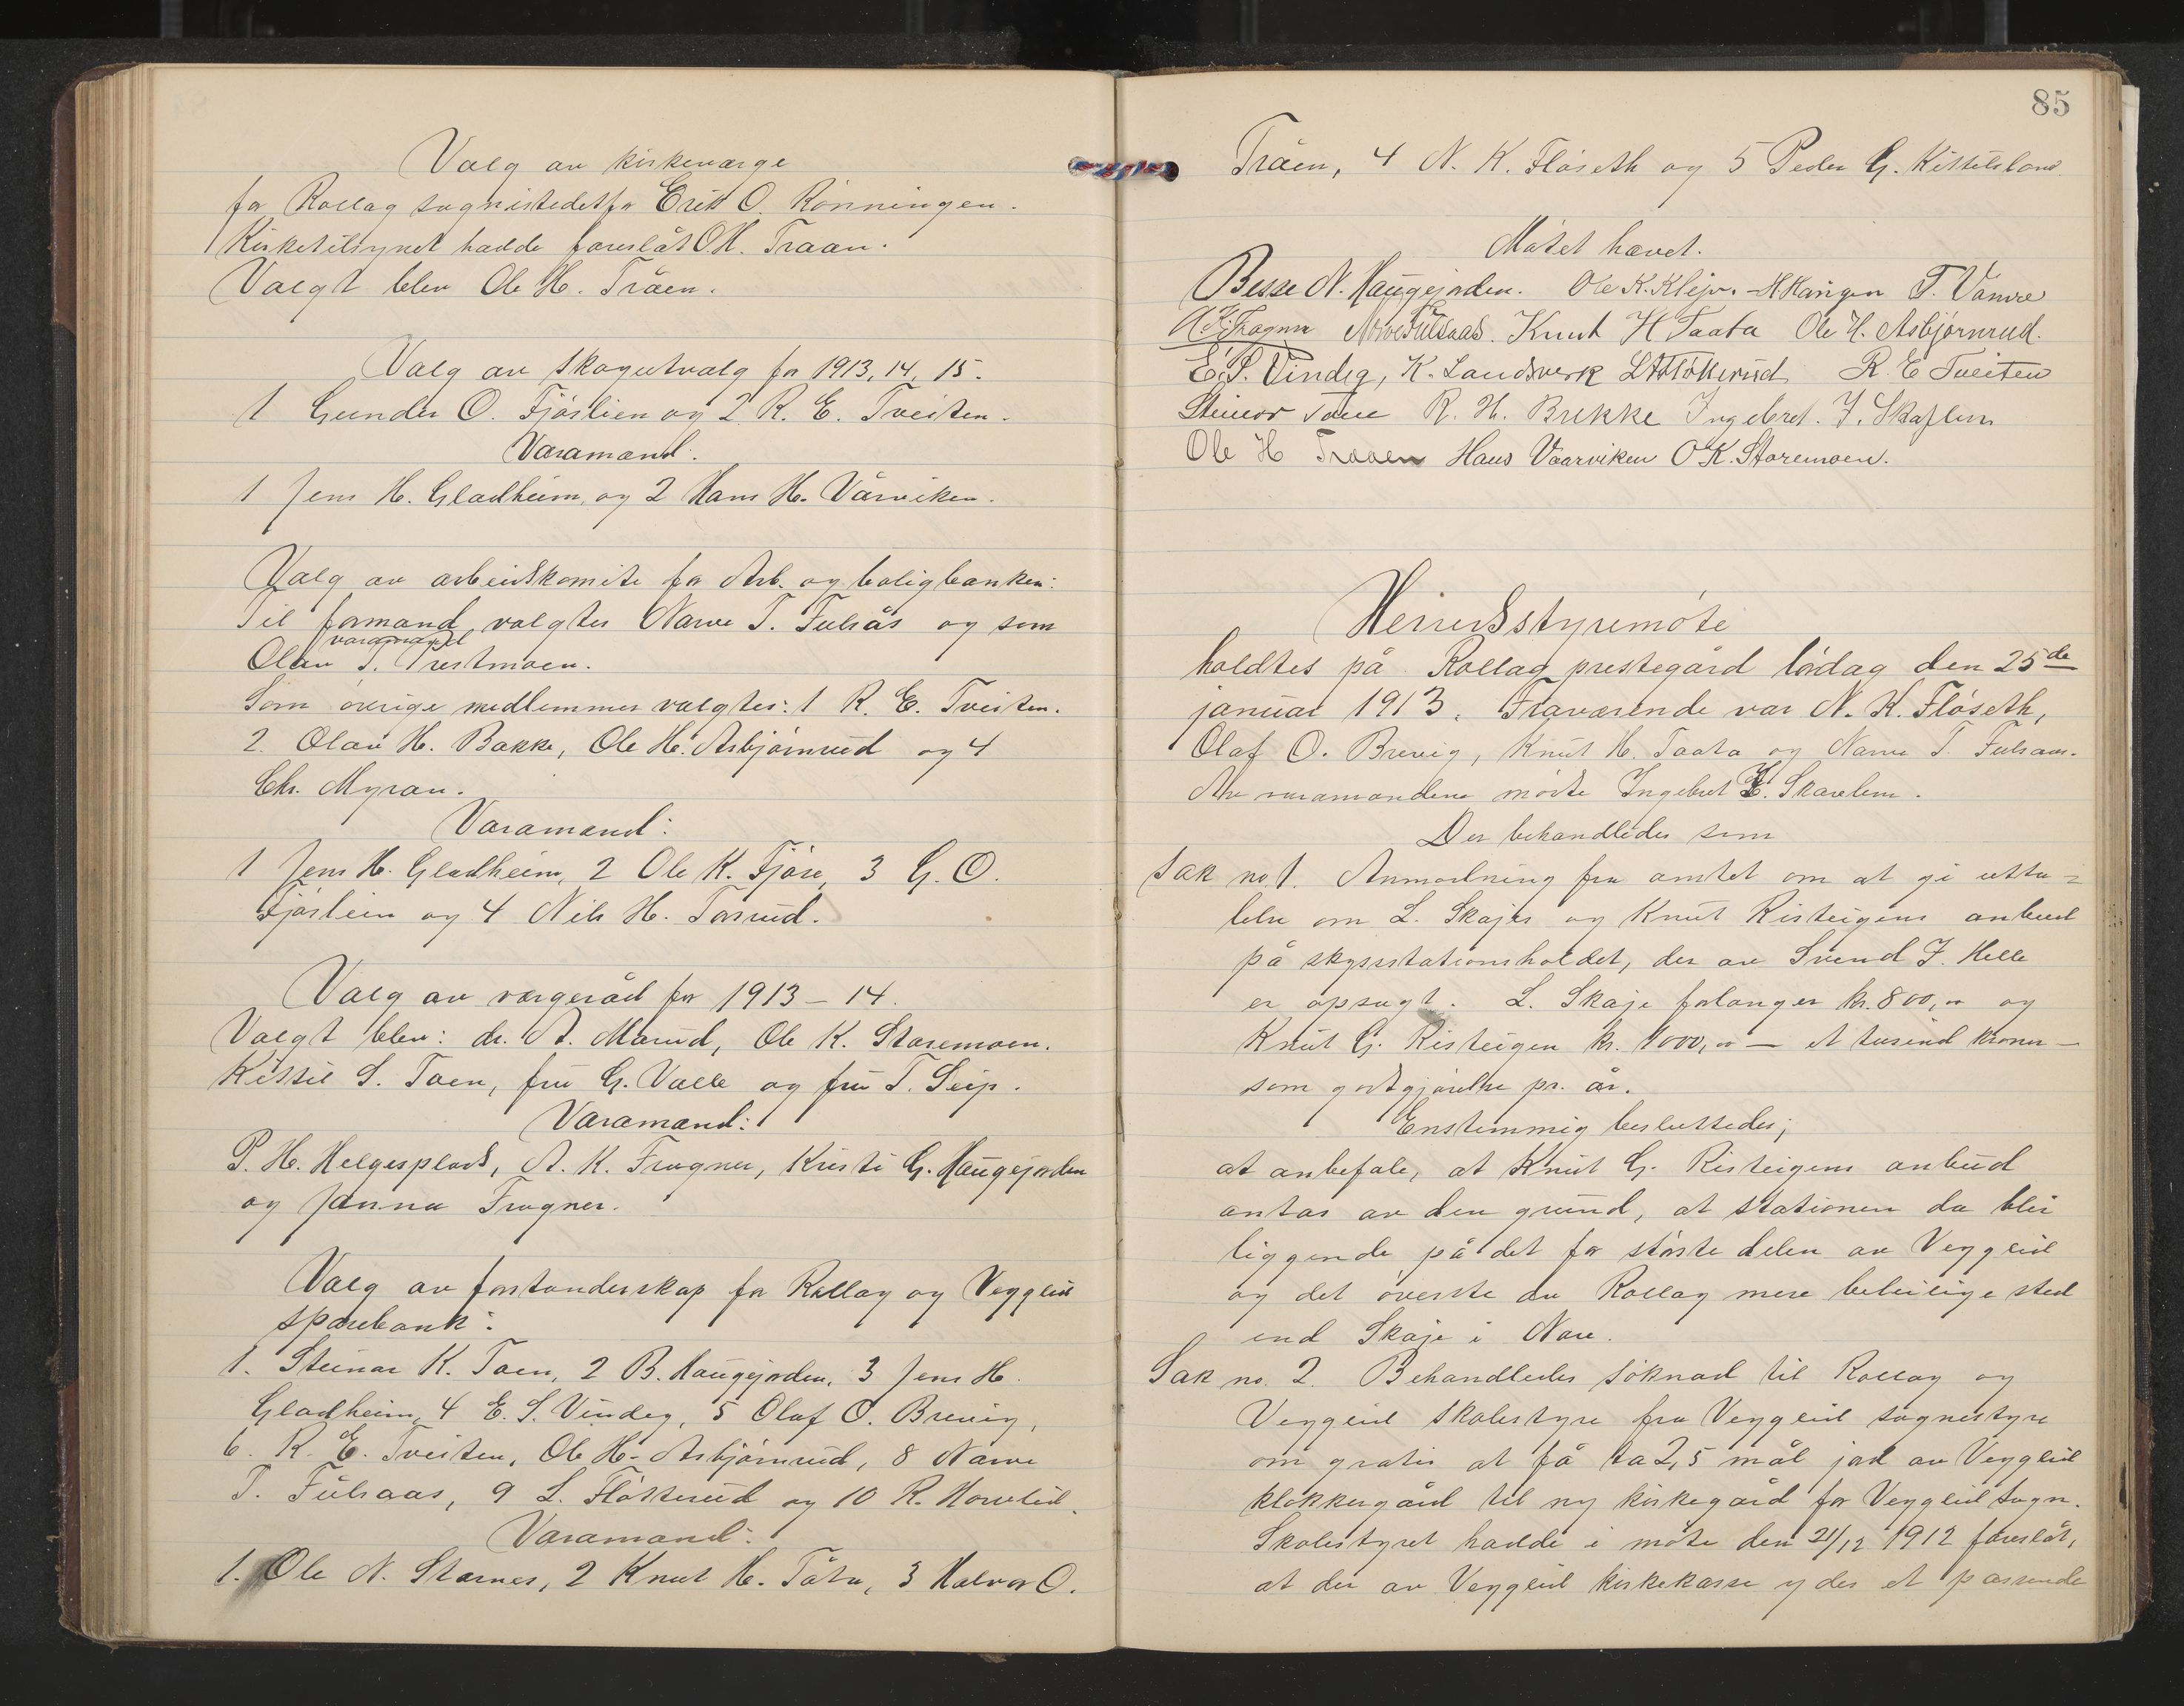 Valg av kirkeværge
for Rollag sogn istedetfor Erik O. Rönningen.
Kirketilsynet hadde foreslåt O.H. Traaen.
Valgt blev Ole H. Tråen.
Valg av skogutvalg for 1913, 14, 15.
1 Gunder O. Fjöslien og 2 R. E. Tveiten.
Varamænd:
1 Jens H. Gladheim, og 2 Hans H. Vårviken.
Valg av arbeidskomite for Arb. og boligbanken:
Til formand valgtes Narve T. Fulsås og som
varamand
Olav T. Prestmoen.
Som övrige medlemmer valgtes: 1 R. E. Tveiten.
2. Olav H. Bakke, Ole H. Asbjörnrud og 4
Chr. Myran.
Varamænd:
1 Jens H. Gladheim, 2 Ole K. Fjöse, 3 G. O.
Fjöslien og 4 Nils H. Tosrud.
Valg av vergeråd for 1913 – 14.
Valgt blev: dr. A. Marud, Ole K. Staremoen.
Kittil S. Toen, fru G. Valle og fru T. Seip.
Varamænd:
P. H. Helgesplads, A. K. Frogner, Kristi G. Haugejorden
og Janna Frogner.
Valg av forstanderskap for Rollag og Veggli
sparebank:
1. Steinar K. Toen, 2 B. Haugejorden, 3 Jens H.
Gladheim, 4 E. S. Vindeg, 5 Olaf O. Brevig,
6. R. E. Tveiten, Ole H. Asbjörnrud, 8 Narve
T. Fulsaas, 9 L. Flötterud og 10 K.
Varamænd:
1. Ole N. Starnes, 2 Knut H. Tåta, 3 Halvor O.
85
Tråen, 4 N. K. Flöseth og 5 Peder G. Kittilsland.
Mötet hævet.
Besse N. Haugejorden. Ole K. Klejv. T. Vamre
A. K. Frogner Narve Fulsaas. Knut H Taata Ole H. Asbjørnrud.
E. S. Vindeg, K. Landsverk R. E Tveiten
Steinar Toen R. H. Brekke Ingebret. J. Skaflem
Ole H Traaen Hans Vaarviken O K. Staremoen.
Herredsstyremöte
holdtes på Rollag prestegård lördag den 25de
januar 1913. Fraværende var N. K. Flöseth,
Olaf O. Brevig, Knut H. Taata og Narve T. Fulsaas.
Av varamændene mötte Ingebret J. Skavlem.
Der behandledes som
Sak no. 1. Anmodning fra amtet om at gi utta=
lelse om L. Skajes og Knut Risteigens anbud
på skysstationsholdet, der av Svend J. Helle
er opsagt. L. Skaje forlanger kr. 800,00 og
Knut G. Risteigen kr. 1000,00 — et tusind kroner —
som godtgjörelse pr. år.
Enstemmig besluttedes;
at anbefale, at Knut G. Risteigens anbud
antas av den grund, at stationen da blir
liggende på det for störste delen av Veggli
og det överste av Rollag mere beleilige sted
end Skaje i Nore.
Sak no. 2. Behandledes söknad til Rollag og
Vegglid skolestyre fra Vegglid sognestyre
om gratis at få ta 2,5 mål jord av Vegglid
klokkergård til ny kirkegård for Vegglid sogn.
Skolestyret hadde i möte den 21/12 1912 foreslåt,
at der av Vegglid kirkekasse ydes et passende